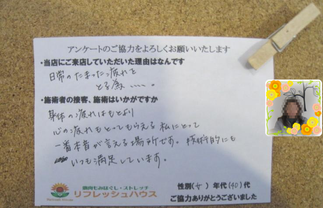 アンケートのご協力をよろしくお願いいたします
・当店にご来店していただいた理由はなんです
日常のたまった疲れを
とる為 ‥‥。
・施術者の接客、施術はいかがですか
身体の疲れはもとより
心の疲れもとってもらえる 私にとって
一番本音が言える場所です。技術的にも
いつも満足しています。
リフレッシュハウス
性別(女) 年代(40)代
ご協力ありがとうございました